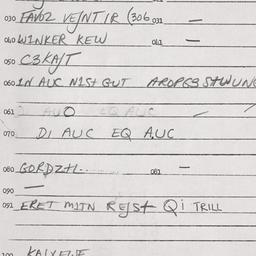 030 FAVOZ VEJNTIR (306 031 —
040 WINKER KEW 041 —
050 C3KAJT
060 IN AUC NIST GUT
061 AUO EQ AUC
070 DI AUC EQ AUC
080 GORDZTL.. 081 —
090 —
091 ERET MITN REJST QI TRILL
100